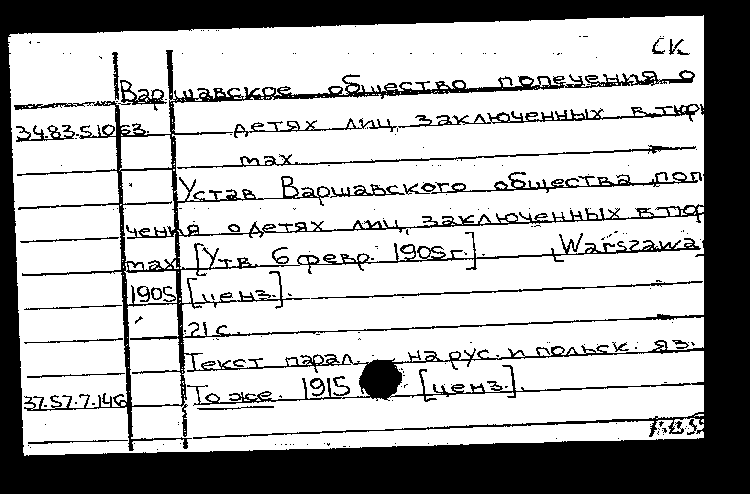 СК
Варшавское общество попечения о
34.83.5.1063. детях лиц, заключенных в тюрь
мах.
Устав Варшавского общества попе
чения о детях лиц, заключенных в тюрь
мах. [Утв. 6 февр. 1905 г.]. [Warszawa]
1905 [ценз.].
21 с.
Текст парал. на рус. и польск. яз.
37.57.7.146 То же. 1915 [ценз.].